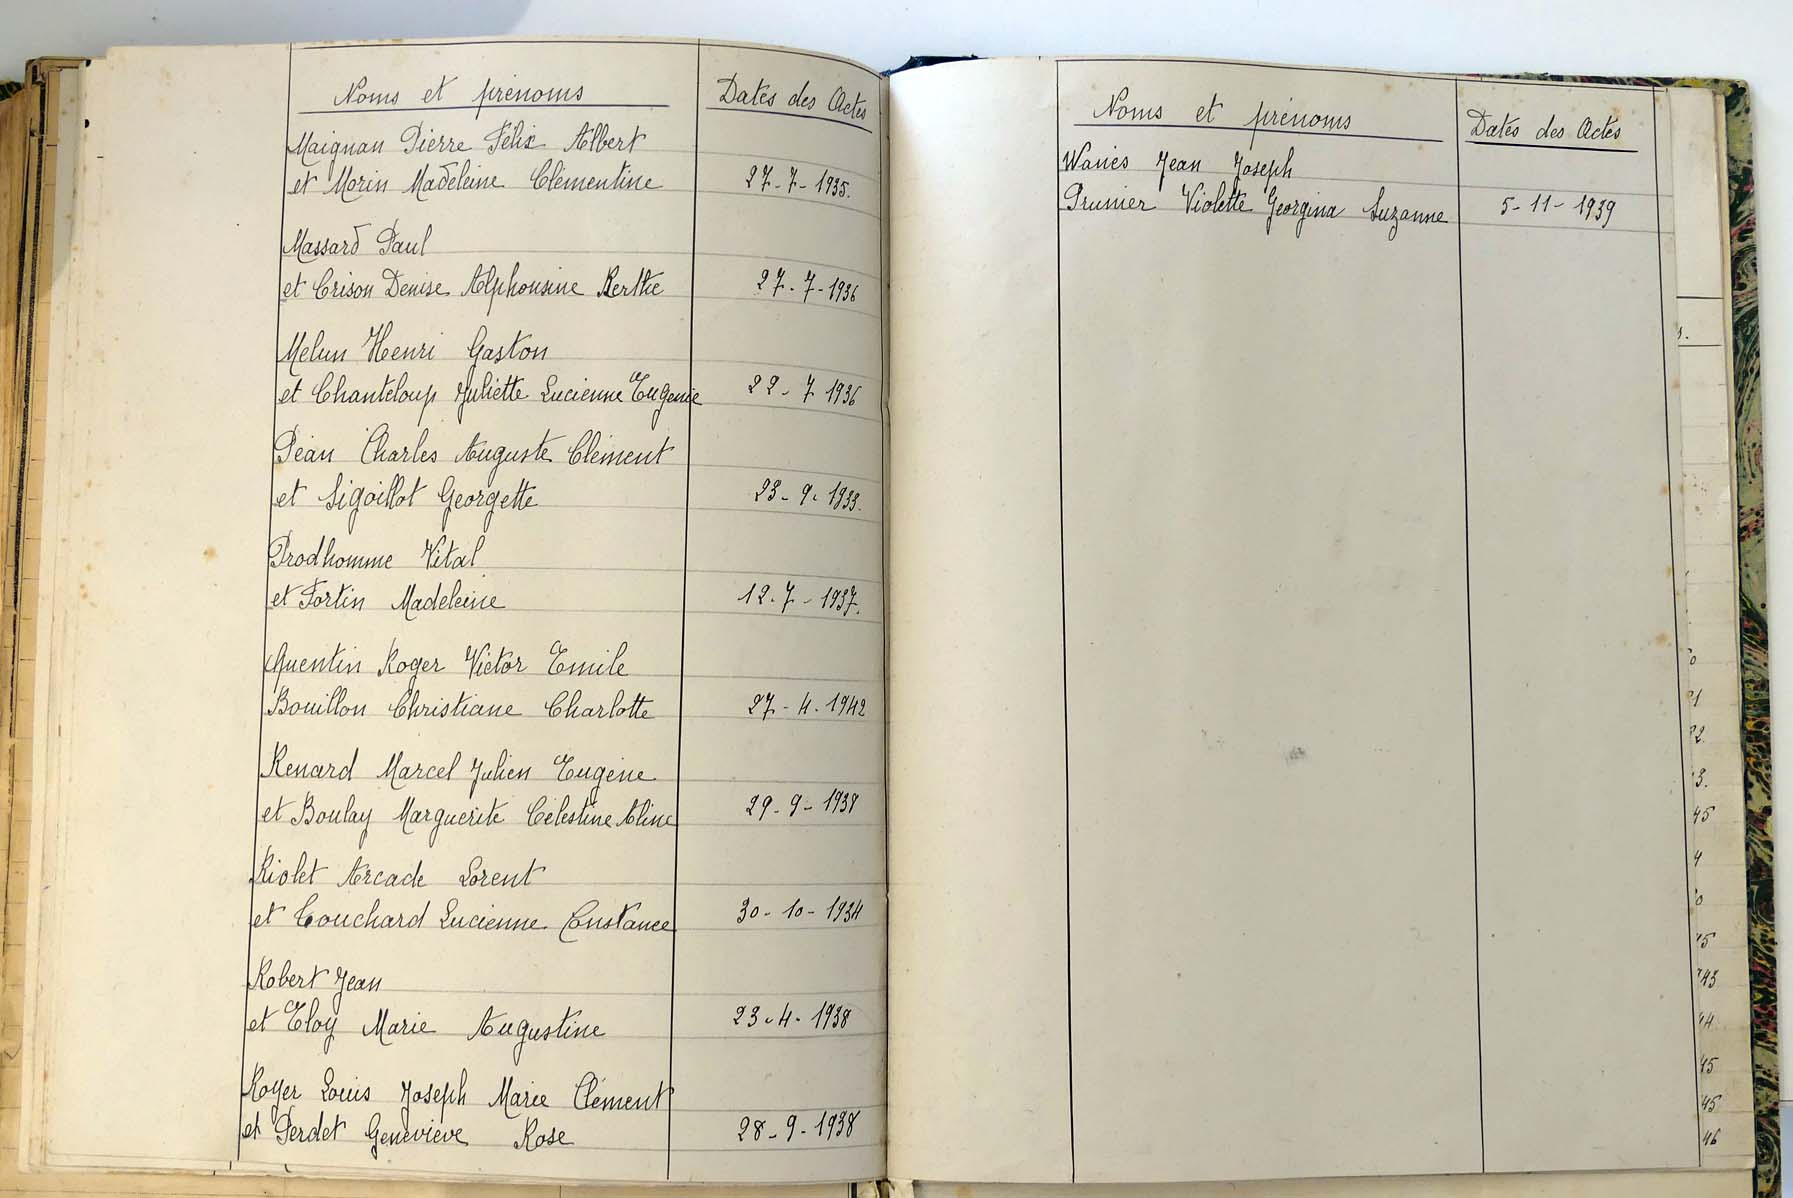 Noms et prénoms Dates des Actes
Maignan Pierre Félix Albert
et Morin Madeleine Clémentine 27-7-1935.
Massard Paul
et Crison Denise Alphonsine Berthe 27-7-1936
Melun Henri Gaston
et Chanteloup Juliette Lucienne Eugenie 22-7 1936
Péan Charles Auguste Clément
et Sigoillot Georgette 23-9-1933.
Prodhomme Vital
et Fortin Madeleine 12-7-1937.
Quentin Roger Victor Emile
Bouillon Christiane Charlotte 27-4-1942
Renard Marcel Julien Eugène
et Boulay Marguerite Célestine Aline 29-9-1938
Riolet Arcade Lorent
et Couchard Lucienne Constance 30-10-1934
Robert Jean
et Eloy Marie Augustine 23-4-1938
Royer Louis Joseph Marie Clément
et Perdet Geneviève Rose 28-9-1938
Noms et prénoms Dates des Actes
Waniés Jean Joseph
Prunier Violette Georgina Suzanne 5-11-1939